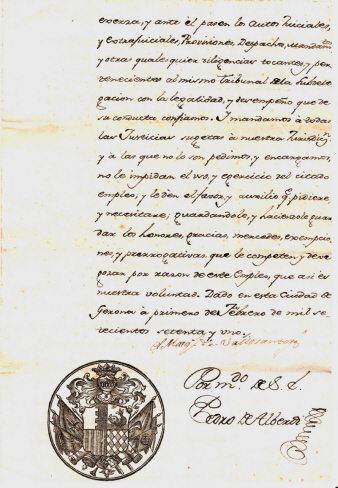 exerza, y ante él pasen los Autos Judiciales,
y extrajudiciales, Provisiones, Despachos, Mandatos
y otras quales quier diligencias tocantes, y per-
tenecientes al mismo Tribunal de la Subdele-
gacion con la legalidad, y desempeño que de
su conducta confiamos. I mandamos à todas
las Justicias sugetas à nuestra Jurisdicn.
y à las que no lo son, pedimos, y encargamos,
no le impidan el uso, y egercicio del citado
empleo, y le den el favor, y auxilio q. pidiere,
y necesitare; guardandole, y haciendole guar-
dar los honores, gracias, mercedes, exempcio-
nes, y prerrogativas, que le competen, y deve
gozar por razon de este Empleo, que assi es
nuestra voluntad. Dado en esta Ciudad de
Gerona à primero de Febrero de mil se-
tecientos setenta, y uno.
El Marqs. de Vallesantoro
Por mdo. de S. S.
Pedro de Alberdi